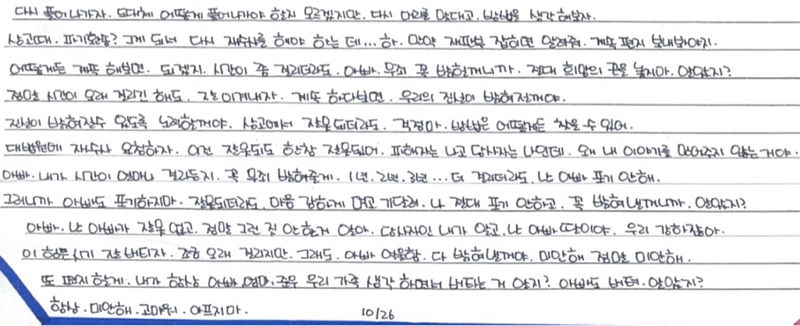 다시 풀어나가자. 도대체 어떻게 풀어나가야 할지 모르겠지만. 다시 마음을 맞대고, 방법을 생각해보자.
상고때. 파기환송? 그게 되서 다시 재수사를 해야 하는 데... 하. 만약 재판부 잡히면 알려줘. 계속 편지 보내봐야지.
어떻게든 계속 해보면. 되겠지. 시간이 좀 걸리더라도. 아빠. 무죄 꼭 밝힐꺼니까. 절대 희망의 끈을 놓지마. 알았지?
정말 시간이 오래 걸리긴 해도, 지는 이겨내자. 계속 하다보면. 우리의 진실이 밝혀질꺼야.
진실이 밝혀질수 있도록 노력할꺼야. 상고에서 잘못되더라도. 걱정마. 방법은 어떻게든 찾을 수 있어.
대법원에 재수사 요청하자. 이건 잘못되도 한참 잘못되어. 피해자는 나고 당사자는 나인데. 왜 내 이야기를 믿어주지 않는거야.
아빠. 내가 시간이 얼마나 걸리든지. 꼭 무죄 밝혀줄게. 1년. 2년. 3년... 더 걸리더라도, 난 아빠 포기 안해.
그러니까 아빠도 포기하지마. 잘못되더라도, 마음 강하게 먹고 기다려. 나 절대 포기 안하고, 꼭 밝혀낼꺼니까. 알았지?
아빠. 난 아빠가 잘못 없고, 정말 그런 짓 안한거 알아. 당사자인 내가 알고, 난 아빠 딸이야. 우리 강하잖아.
이 힘든시기 잘 버티자. 조금 오래 걸리지만. 그래도. 아빠 억울함. 다 밝혀낼꺼야. 미안해 정말 미안해.
또 편지할게. 내가 항상 아빠 엄마. 우리 가족 생각 하면서 버티는 거 알지? 아빠도 버텨. 알았지?
항상. 미안해. 고마워. 아프지마. 10/26